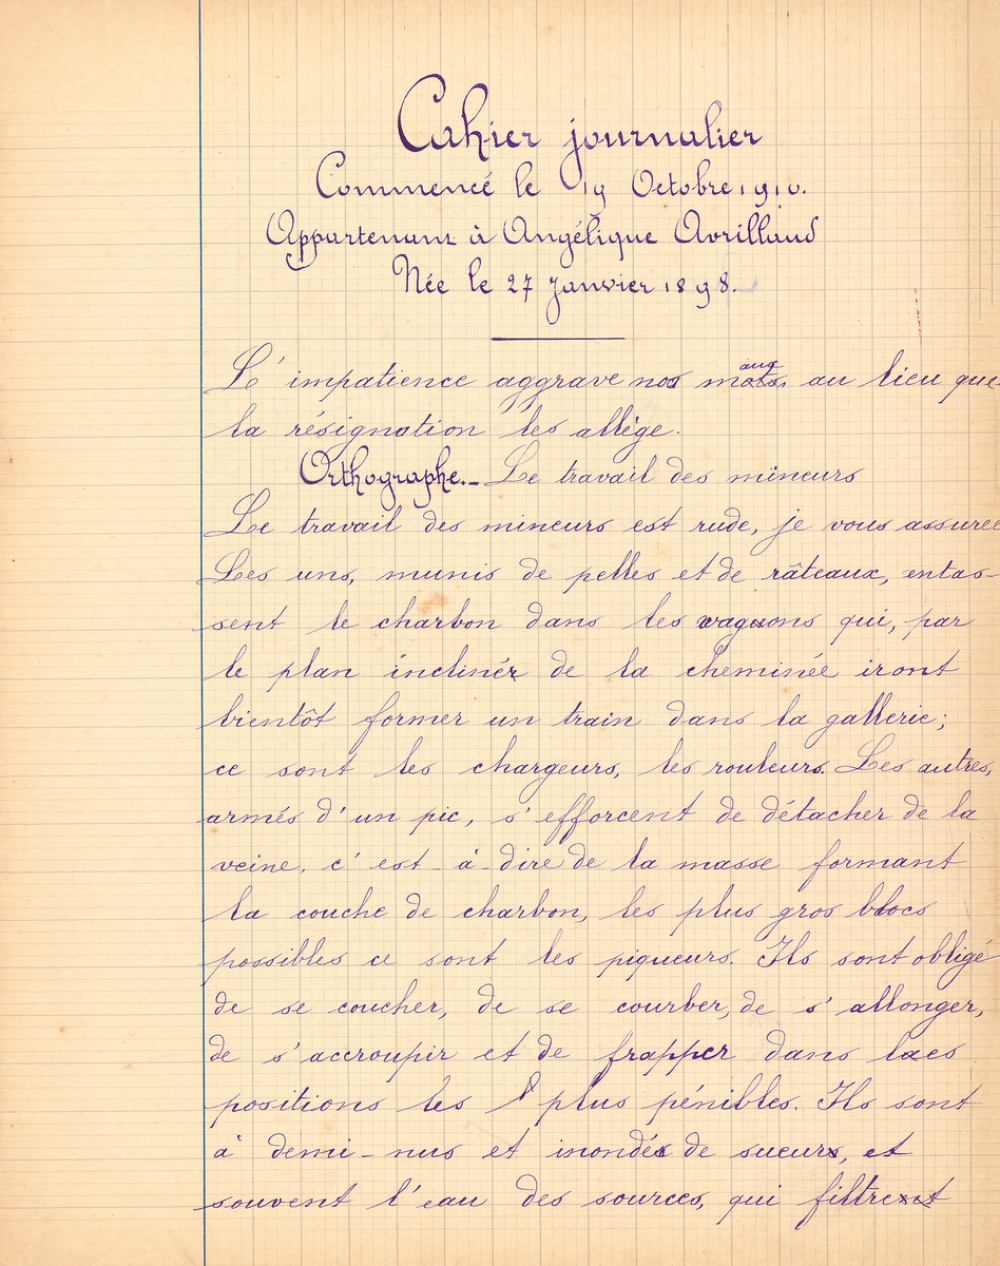 Cahier journalier
Commencé le 19 Octobre 1910.
Appartenant à Angélique Avrillaud
Née le 27 Janvier 1898.
L'impatience aggrave nos maux au lieu que
la résignation les allège.
Orthographe. - Le travail des mineurs
Le travail des mineurs est rude, je vous assure
Les uns, munis de pelles et de râteaux, entas-
sent le charbon dans les wagons qui, par
le plan incliné de la cheminée iront
bientôt former un train dans la gallerie;
ce sont les chargeurs, les rouleurs. Les autres,
armés d'un pic, s'efforcent de détacher de la
veine, c'est-à-dire de la masse formant
la couche de charbon, les plus gros blocs
possibles ce sont les piqueurs. Ils sont obligé
de se coucher, de se courber, de s'allonger,
de s'accroupir et de frapper dans les
positions les plus pénibles. Ils sont
à demi-nus et inondés de sueur, et
souvent l'eau des sources, qui filtre